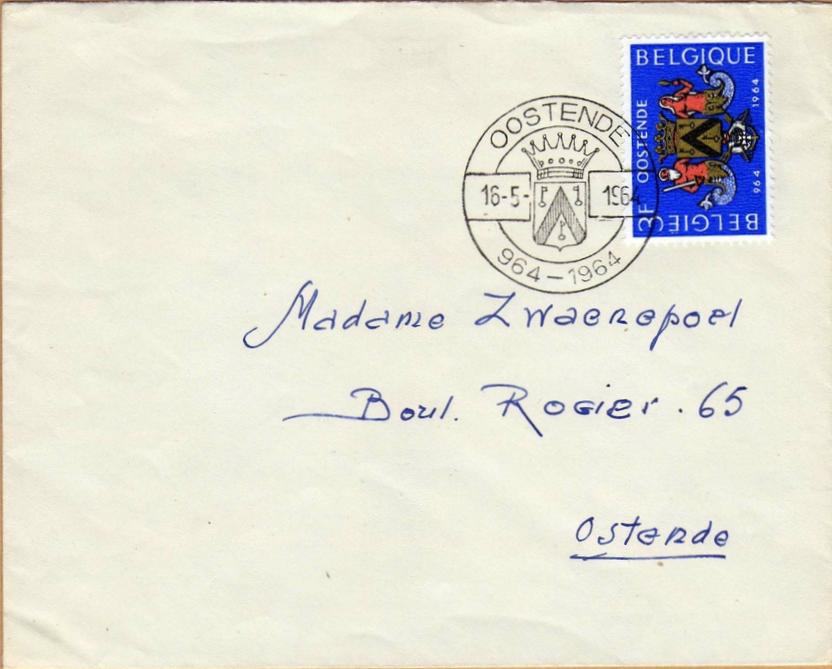 BELGIQUE
OOSTENDE
3F
964
1964
BELGIË
OOSTENDE
16-5-1964
964-1964
Madame Zwaenepoel
Boul. Rogier. 65
Ostende